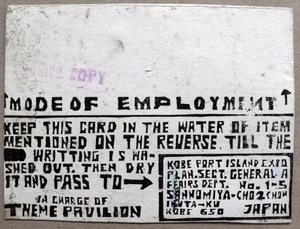 COPY
↑MODE OF EMPLOYMENT↑
KEEP THIS CARD IN THE WATER OF ITEM
MENTIONED ON THE REVERSE. TILL THE
WRITTING IS WA-
SHED OUT. THEN DRY
IT AND PASS TO →
IN CHARGE OF
THEME PAVILION
KOBE PORT ISLAND EXPO
PLAN. SECT. GENERAL A
FFAIRS DEPT. No. 1-5
SANNOMIYA-CHO 2 CHOM
IKUTA-KU
KOBE 650 JAPAN